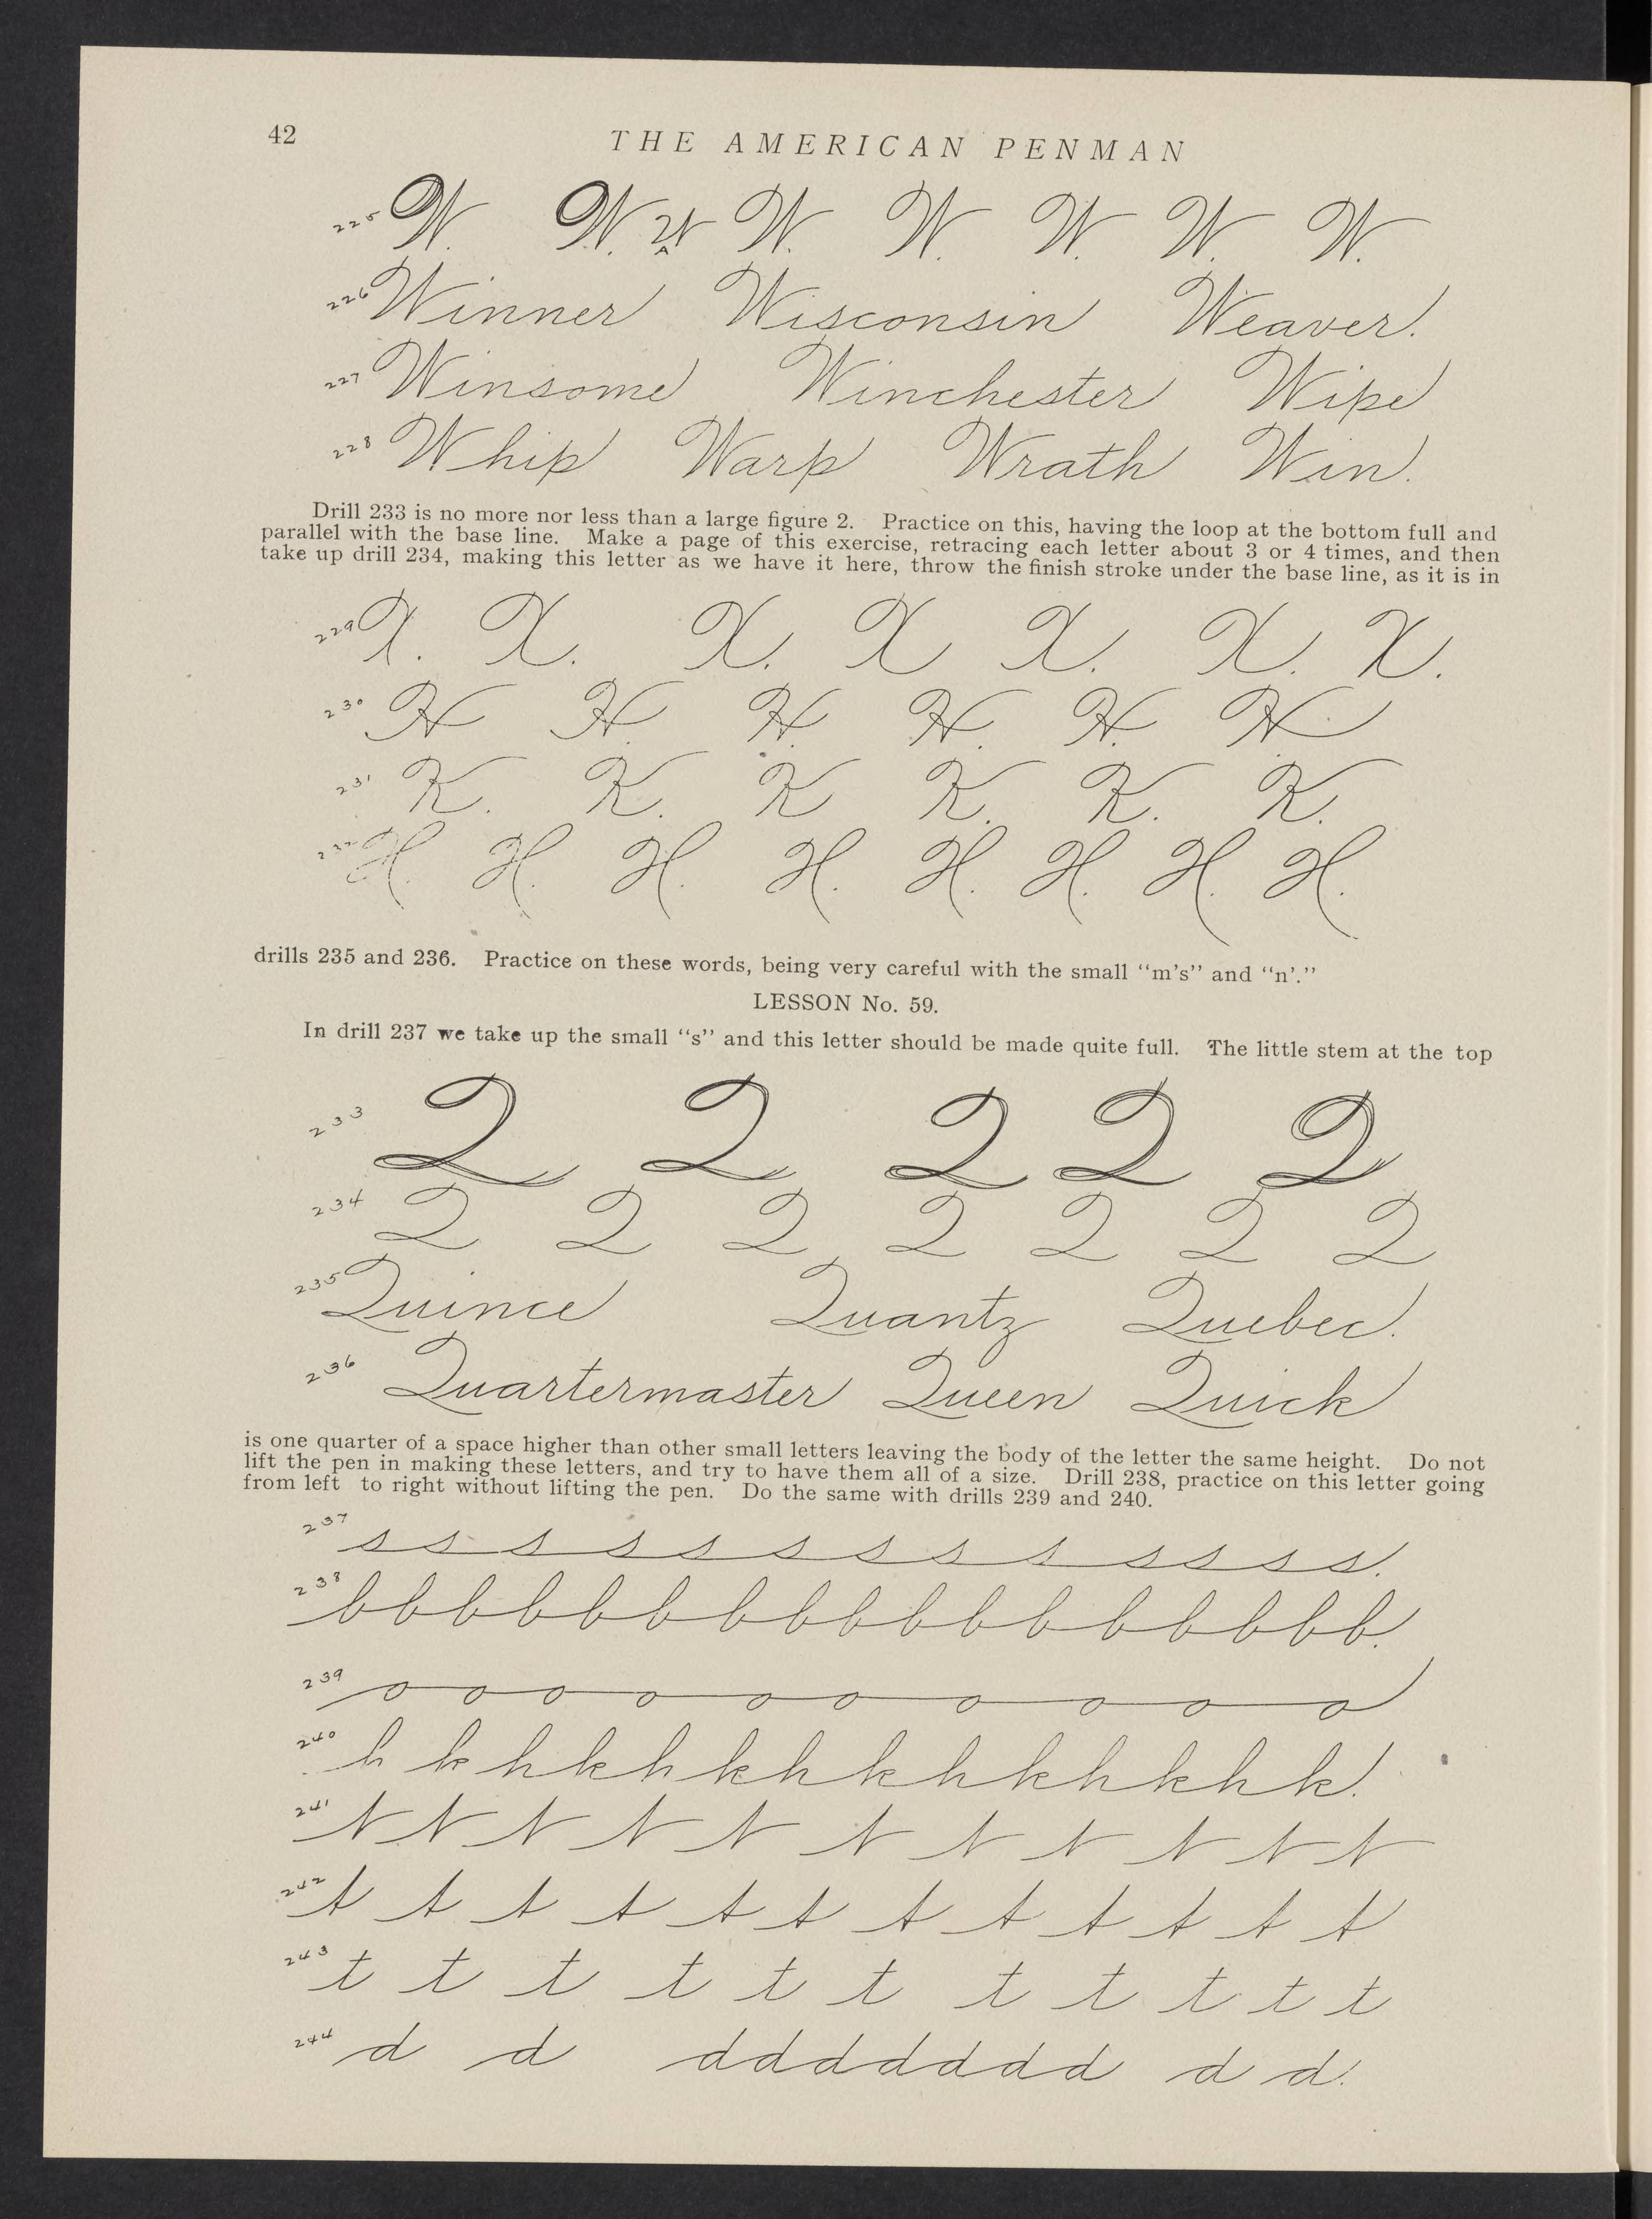 42
THE AMERICAN PENMAN
225 W. W. W W. W. W. W. W.
226 Winner Wisconsin Weaver.
227 Winsome Winchester Wipe
228 Whip Warp Wrath Win.
Drill 233 is no more nor less than a large figure 2. Practice on this, having the loop at the bottom full and
parallel with the base line. Make a page of this exercise, retracing each letter about 3 or 4 times, and then
take up drill 234, making this letter as we have it here, throw the finish stroke under the base line, as it is in
229 X. X. X. X X. X. X.
230 H H. H. H. H. H
231 K. K. K K. K. K.
232 H. H. H. H. H. H. H. H.
drills 235 and 236. Practice on these words, being very careful with the small "m's" and "n'."
LESSON No. 59.
In drill 237 we take up the small "s" and this letter should be made quite full. The little stem at the top
233 Q Q Q Q Q
234 Q Q Q Q Q Q Q
235 Quince Quantz Quebec.
236 Quartermaster Queen Quick
is one quarter of a space higher than other small letters leaving the body of the letter the same height. Do not
lift the pen in making these letters, and try to have them all of a size. Drill 238, practice on this letter going
from left to right without lifting the pen. Do the same with drills 239 and 240.
237 s s s s s s s s s s s s s.
238 b b b b b b b b b b b b b b b b b.
239 o o o o o o o o o o
240 h k h k h k h k h k h k h k.
241 t t t t t t t t t t t
242 t t t t t t t t t t t t
243 t t t t t t t t t t t
244 d d d d d d d d d d d.